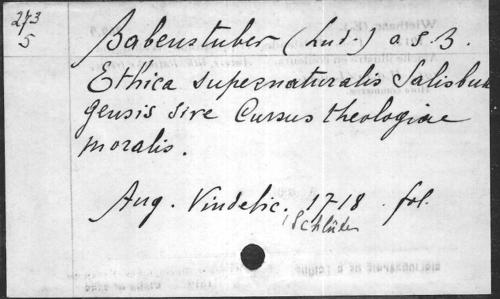 273
5
Babenstuber (Lud.) a S. B.
Ethica supernaturalis Salisbur
gensis sive Cursus theologiae
moralis.
Aug. Vindelic. 1718. fol.